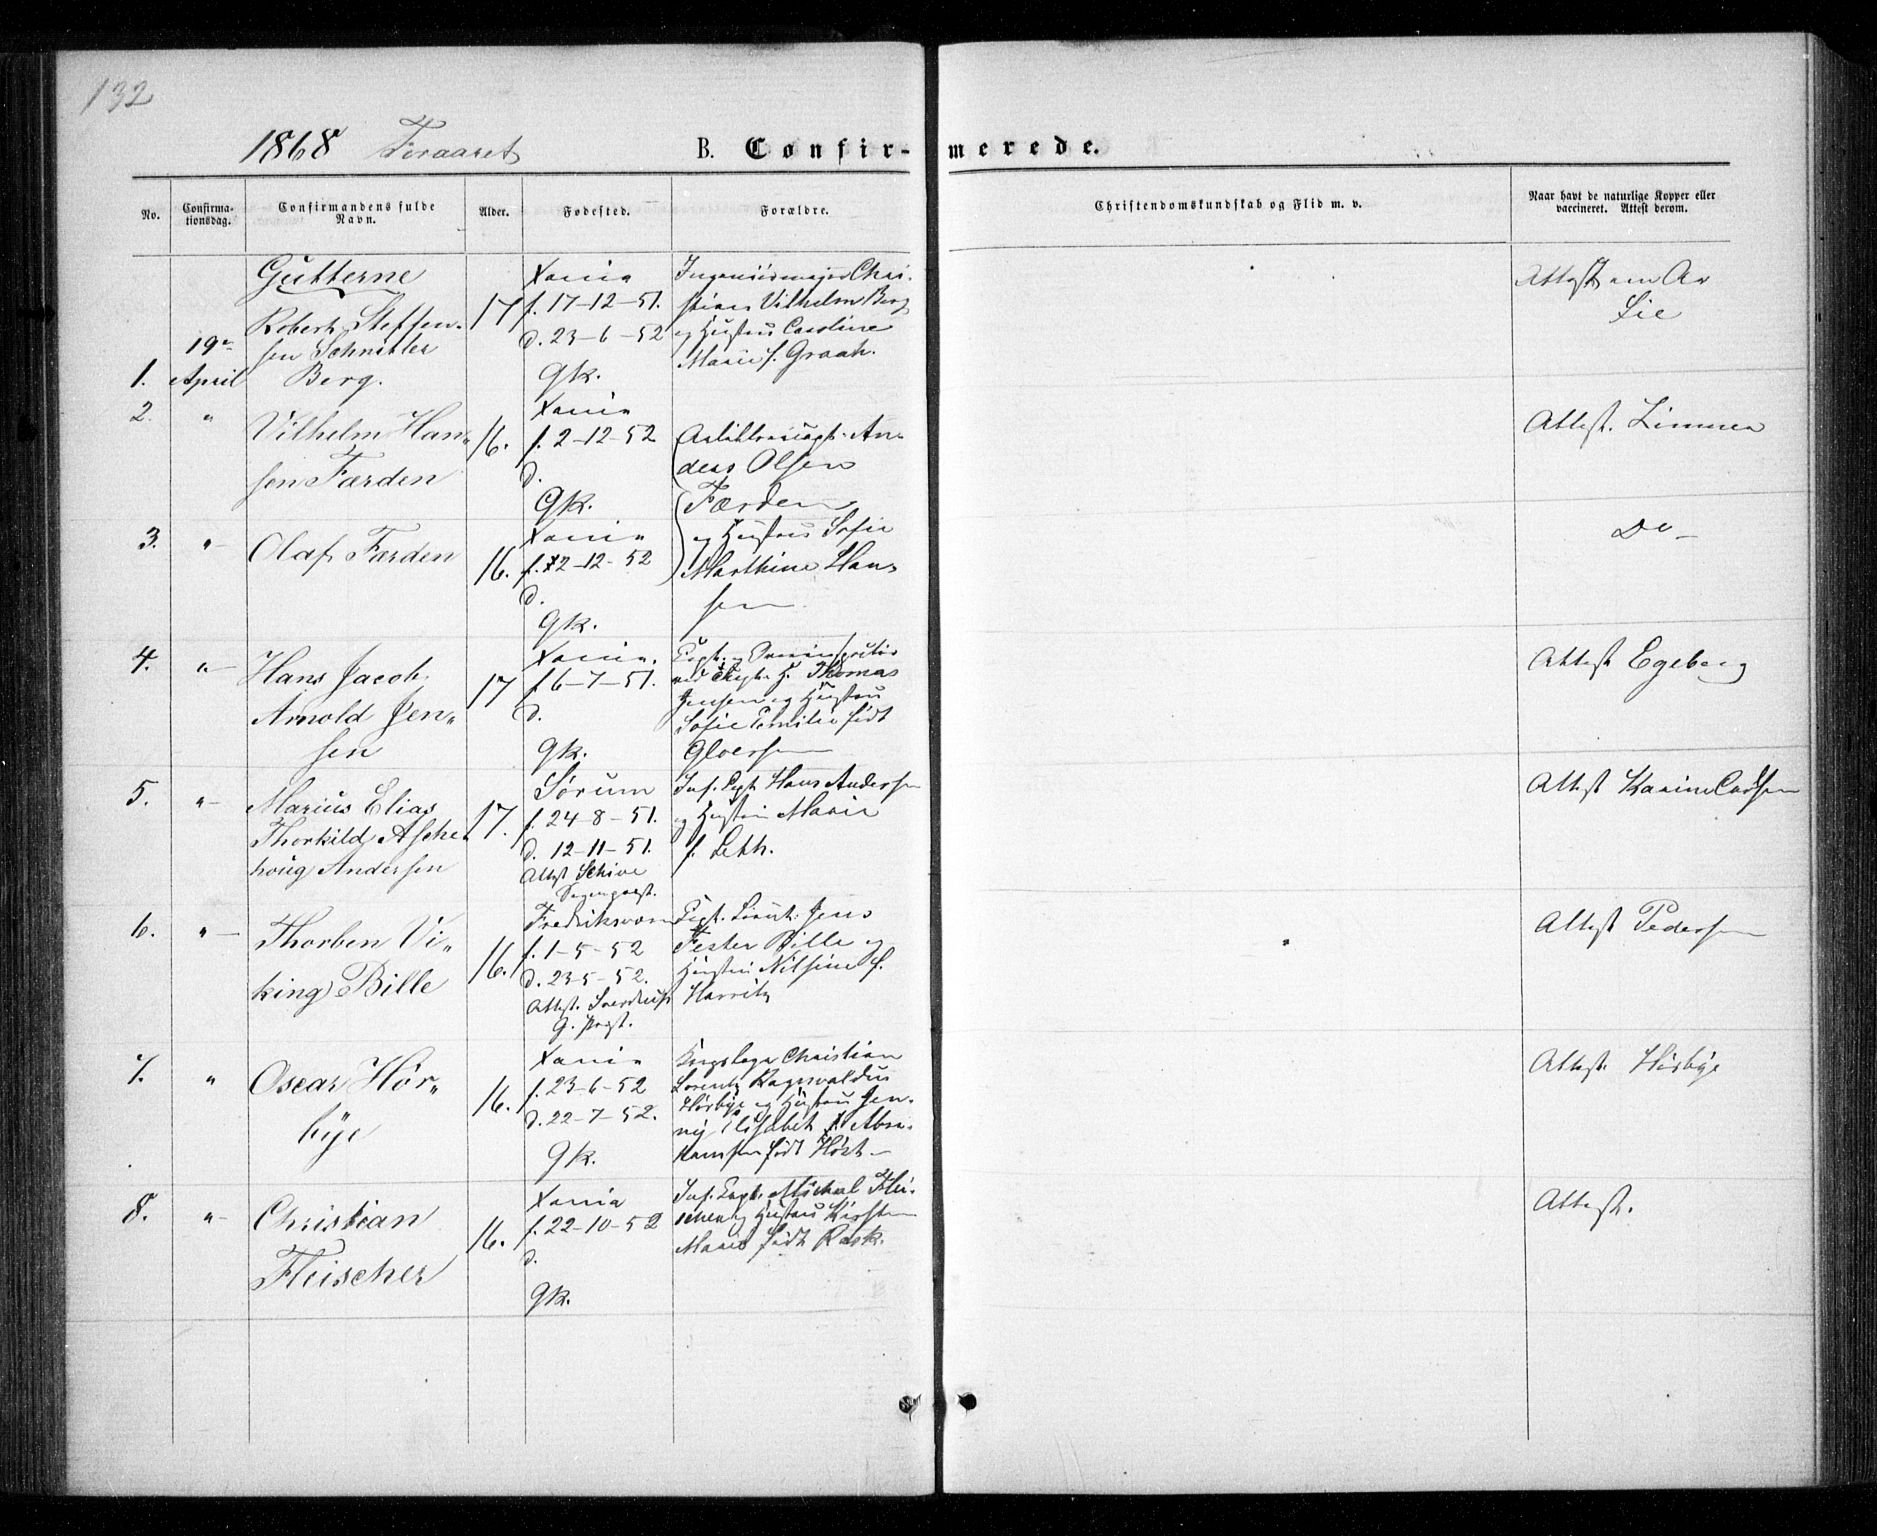 132
1868 Foraaret
B. Confir-
merede.
No.
Confirma-
tionsdag.
Confirmandens fulde
Navn.
Alder.
Fødested.
Forældre.
Christendomskundskab og Flid m. v.
Naar havt de naturlige Kopper eller
vaccineret. Attest derom.
Gutterne
1.
19de
April
Robert Steffen-
sen Schnitler
Berg.
17
Xania
f. 17-12-51.
d. 23-6-52
Gk.
Ingeniörmajor Chri-
stian Vilhelm Berg
og Hustru Caroline
Marie f. Graah.
Lie
2.
"
Vilhelm Han-
sen Færden
16.
Xania
f. 2-12-52
d.
Gk.
An-
ders Olsen
Færden
og Hustru Sofie
Marthine Han-
sen
Attest.
3.
"
Olaf Færden
16.
Xania
f. 2-12-52
d.
Gk.
Do
4.
"
Hans Jacob
Arnold Jen-
sen
17
Xania.
f. 6-7-51.
d.
Gk.
Thomas
Jensen og Hustru
Sofie Emilie født
Gloersen
Attest Egeberg
5.
"
Marius Elias
Thorkild Asche-
houg Andersen
17.
Sørum
f. 24-8-51.
d. 12-11-51.
Attest Schive
Sogneprest.
Inf. Capt. Hans Andersen
og Hustru Marie
f. Leth.
Attest Karine
6.
"
Thorben Vi-
king Bille
16.
Fredriksværn
f. 1-5-52
d. 23-5-52.
Attest. Sverdrup
G. prest.
Jens
Fester Bille og
Hustru Nilsine f.
Harritz
Attest Pedersen
7.
"
Oscar Hör-
bye
16.
Xania
f. 23-6-52
d. 22-7-52.
Gk.
Christian
Lorentz Ragnvaldus
Hörbye og Hustru Jen-
ny Elisabet Abra-
hamsen født Høst
Attest. Hörbye
8.
"
Christian
Fleischer
16.
Xania
f. 22-10-52
d.
Gk.
Inf. Capt. Michael Flei-
scher og Hustru Kirsten
Marie født Rask.
Attest.